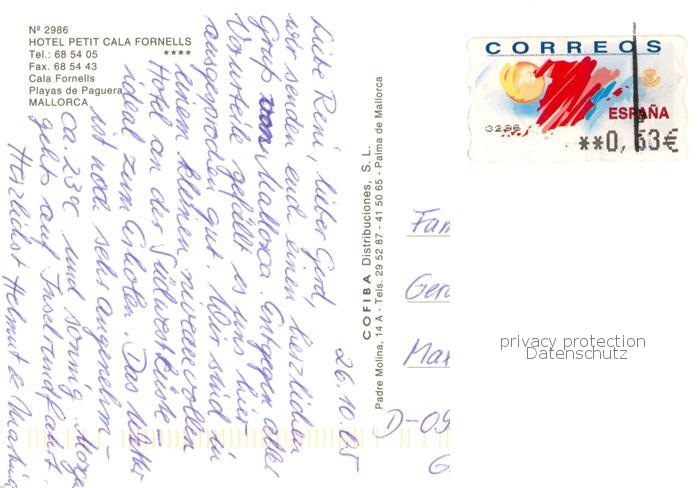 Nº 2986
HOTEL PETIT CALA FORNELLS
Tel.: 68 54 05 ****
Fax. 68 54 43
Cala Fornells
Playas de Paguera
MALLORCA
26.10.
Liebe Reni, lieber Gerd,
wir senden euch einen herzlichen
Gruß von Mallorca. Entgegen aller
Vorurteile gefällt es uns hier
ausgesprochen gut. Wir sind in
einem kleinen niveauvollen
Hotel an der Südwestküste -
ideal zum Erholen. Das Wetter
ist noch sehr angenehm -
ca. 23°C und sonnig. Morgen
gehts auf Inselrundfahrt.
Herzlichst Helmut &
COFIBA Distribuciones, S. L.
Padre Molina, 14 A - Tels. 29 52 87 - 41 50 65 - Palma de Mallorca
CORREOS
ESPAÑA
0286
**0,53€
Fam
Gerd
Max
D-09
G
privacy protection
Datenschutz